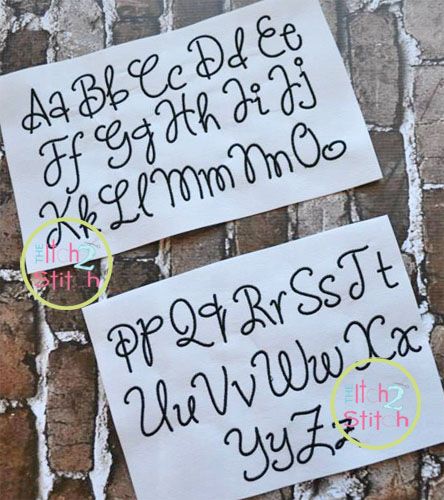 Aa Bb Cc Dd Ee
Ff Gg Hh Ii Jj
Kk Ll Mm Nn Oo
THE Itch 2 Stitch
Pp Qq Rr Ss Tt
Uu Vv Ww Xx
Yy Zz
THE Itch 2 Stitch